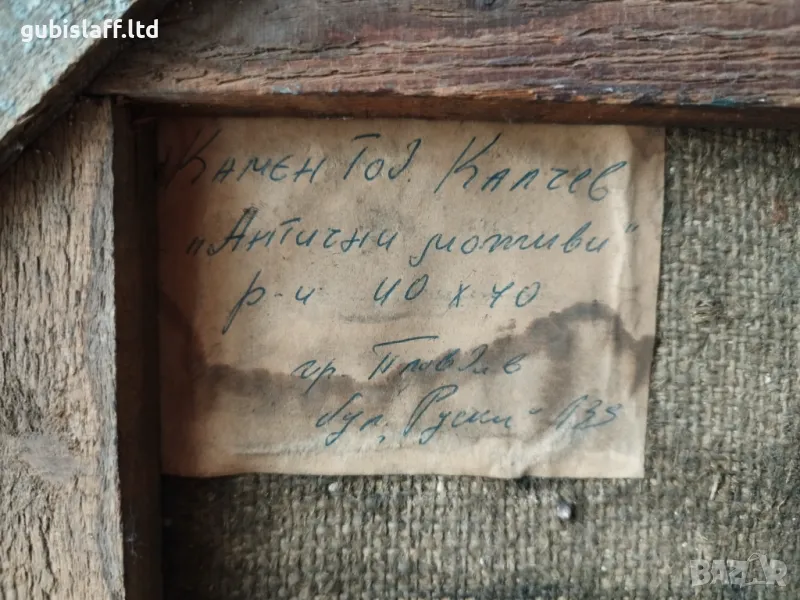 gubislaff.ltd
Камен Тод. Калчев
"Антични мотиви"
р-и 40 х 40
гр. Пловдив
бул. "Руски"
BAZAR